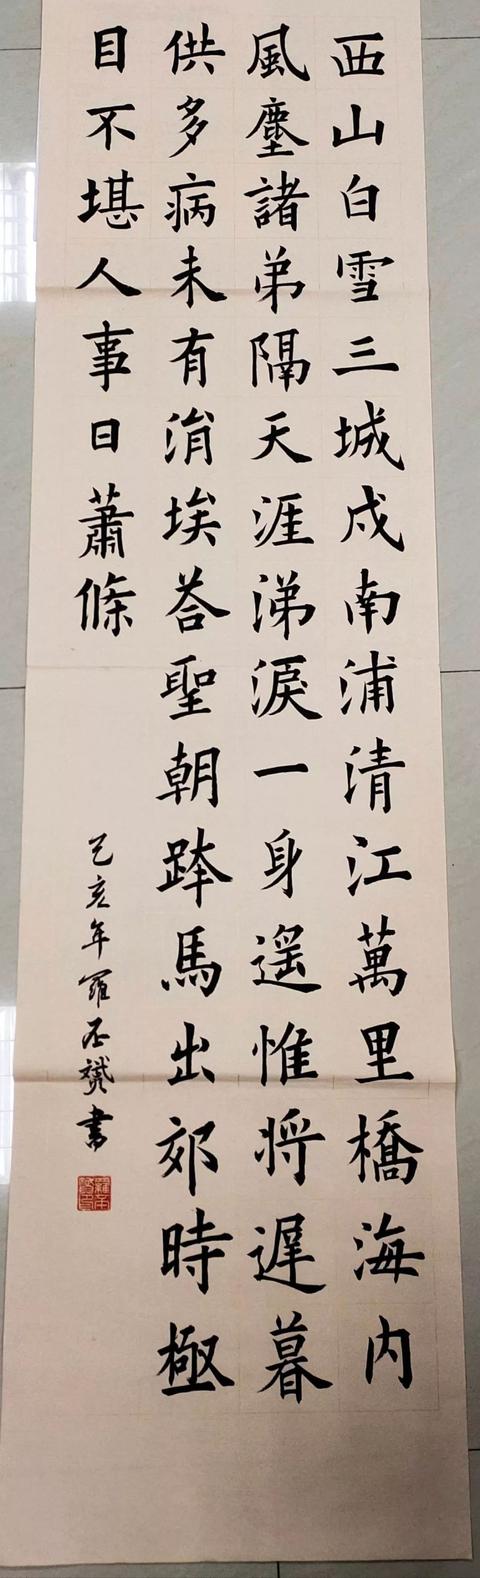 西山白雪三城戍南浦清江萬里橋海内
風塵諸弟隔天涯涕淚一身遥惟將遲暮
供多病未有涓埃荅聖朝跨馬出郊時極
目不堪人事日蕭條
己亥年羅丕贇書